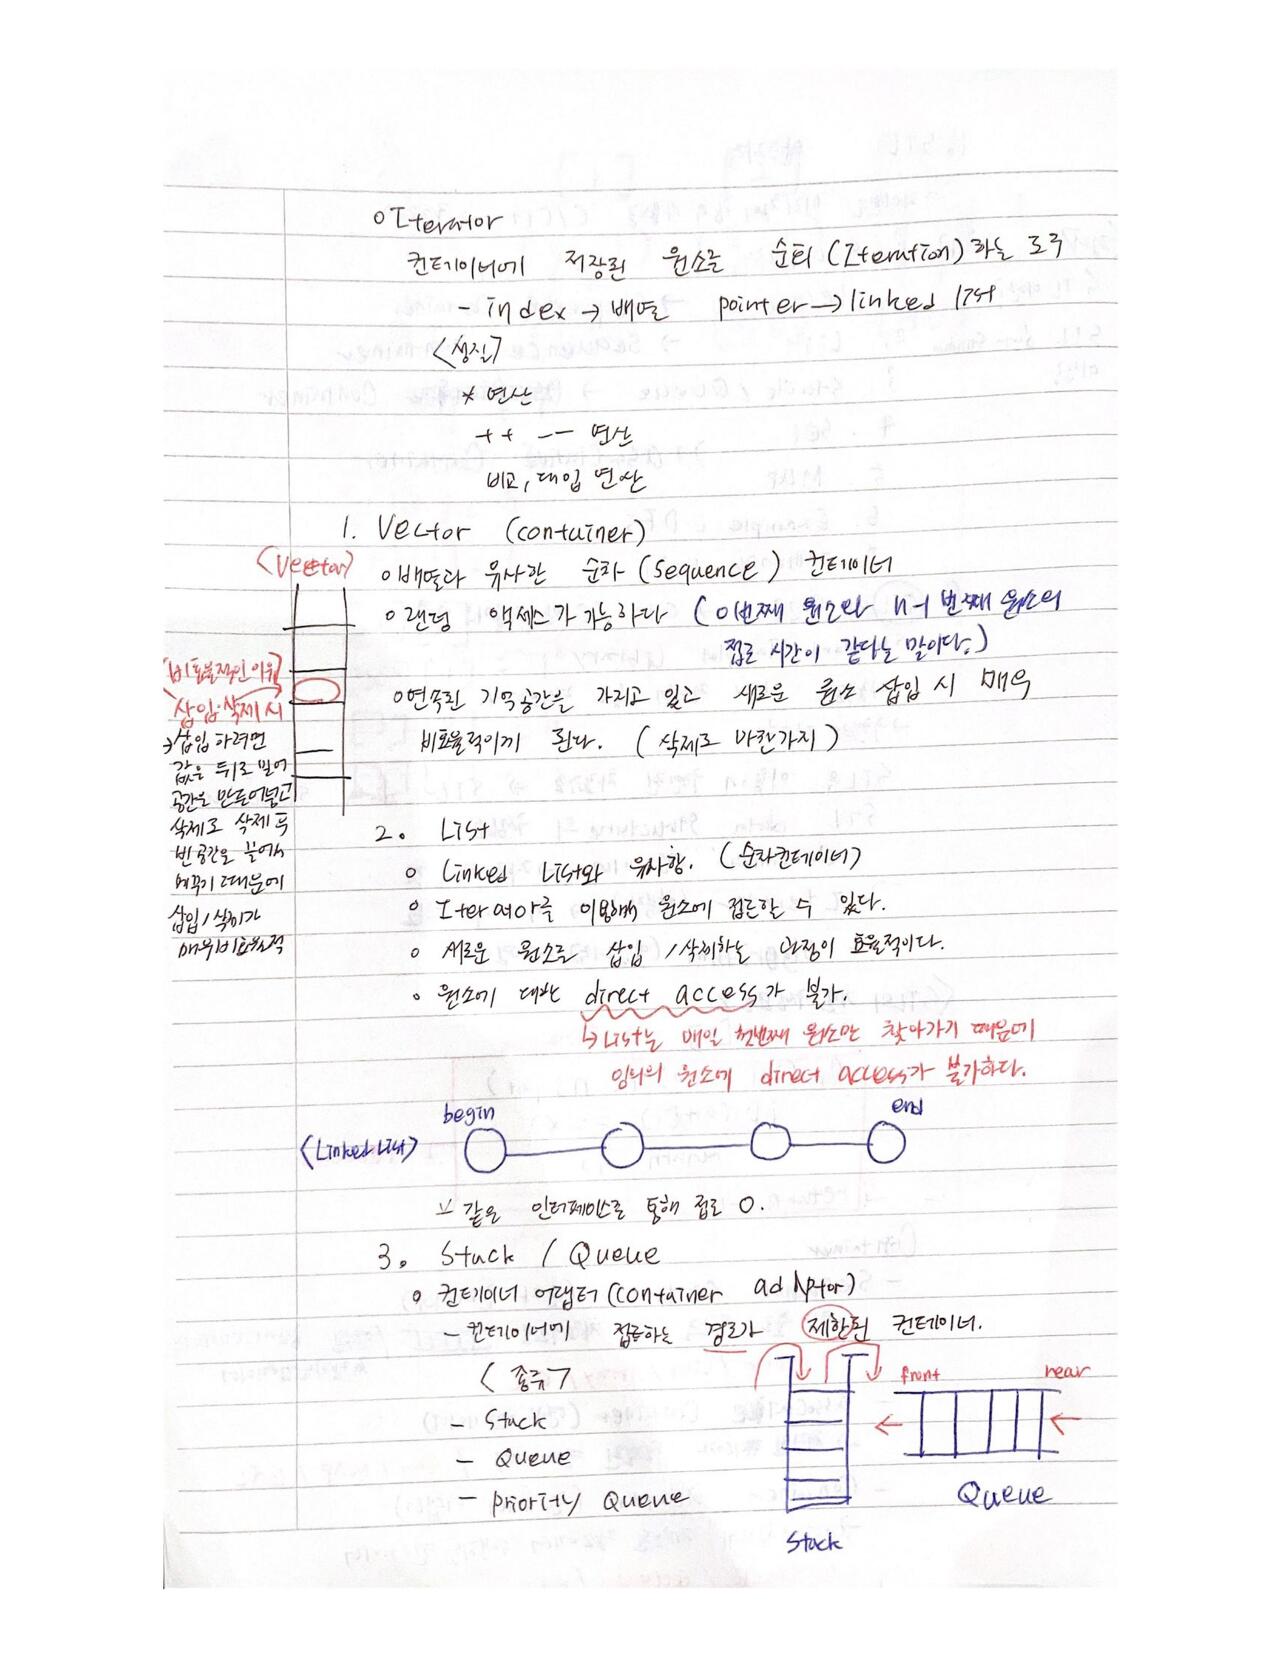 o Iterator
컨테이너에 저장된 원소를 순회(Iteration)하는 도구
- index → 배열 pointer → linked list
<성질>
* 연산
++ -- 연산
비교, 대입 연산
1. Vector (container)
<Vector>
o 배열과 유사한 순차 (sequence) 컨테이너
o 랜덤 액세스가 가능하다 (0번째 원소와 n-1번째 원소의
접근 시간이 같다는 말이다.)
o 연속된 기억공간을 가지고 있고 새로운 원소 삽입 시 매우
비효율적이게 된다. (삭제도 마찬가지)
[비효율적인 이유]
삽입·삭제 시
→ 삽입 하려면
값을 뒤로 밀어
공간을 만들어넣고
삭제도 삭제 후
빈 공간을 끌어와
메꾸기 때문에
삽입/삭제가
매우 비효율적
2. List
o Linked List와 유사함. (순차컨테이너)
o Iterator를 이용해 원소에 접근할 수 있다.
o 새로운 원소를 삽입/삭제하는 과정이 효율적이다.
o 원소에 대한 direct access가 불가.
↳ List는 매일 첫번째 원소만 찾아가기 때문에
임의의 원소에 direct access가 불가하다.
begin end
<Linked List>
같은 인터페이스를 통해 접근 O.
3. Stack / Queue
o 컨테이너 어댑터 (container adaptor)
- 컨테이너에 접근하는 경로가 제한된 컨테이너.
<종류>
- Stack
- Queue
- Priority Queue
front rear
Queue
Stack